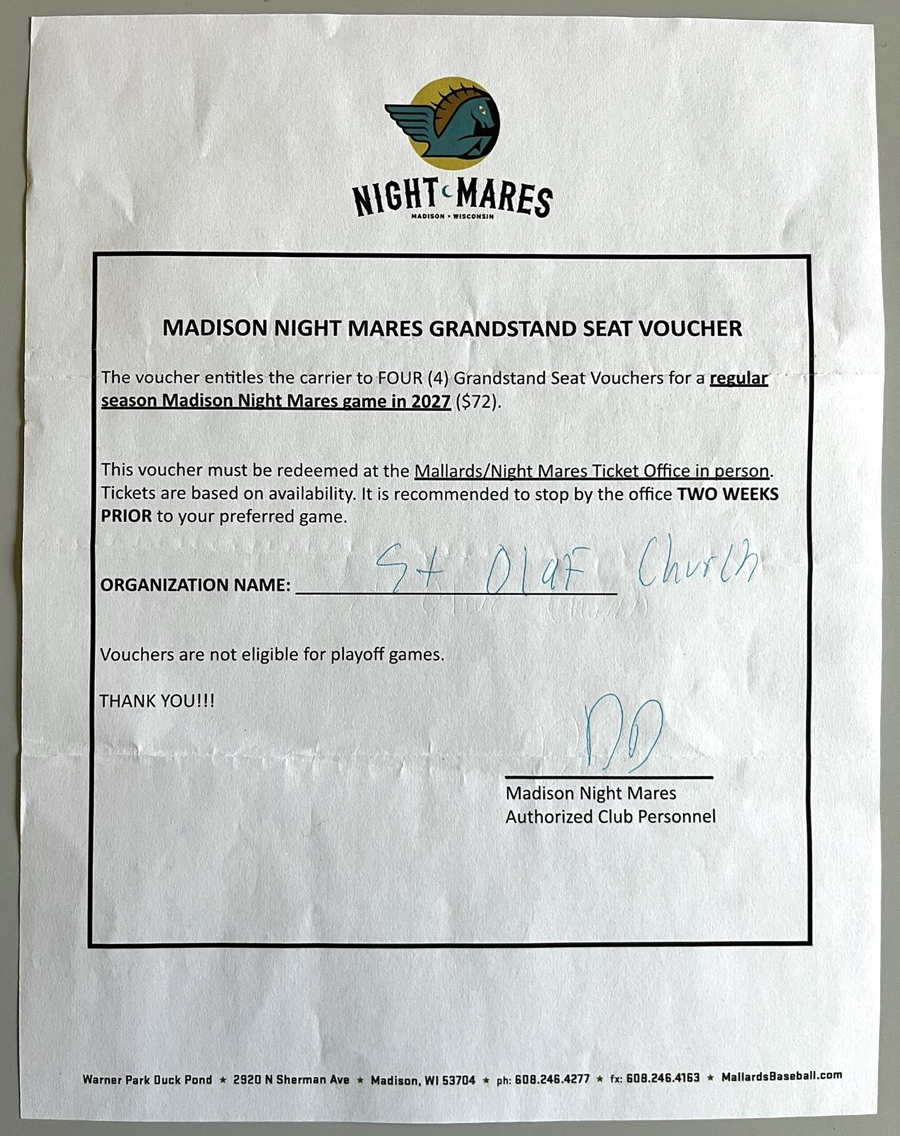 NIGHT MARES
MADISON • WISCONSIN
MADISON NIGHT MARES GRANDSTAND SEAT VOUCHER
The voucher entitles the carrier to FOUR (4) Grandstand Seat Vouchers for a regular
season Madison Night Mares game in 2027 ($72).
This voucher must be redeemed at the Mallards/Night Mares Ticket Office in person.
Tickets are based on availability. It is recommended to stop by the office TWO WEEKS
PRIOR to your preferred game.
ORGANIZATION NAME: St Olaf Church
Vouchers are not eligible for playoff games.
THANK YOU!!!
DD
Madison Night Mares
Authorized Club Personnel
Warner Park Duck Pond ★ 2920 N Sherman Ave ★ Madison, WI 53704 ★ ph: 608.246.4277 ★ fx: 608.246.4163 ★ MallardsBaseball.com